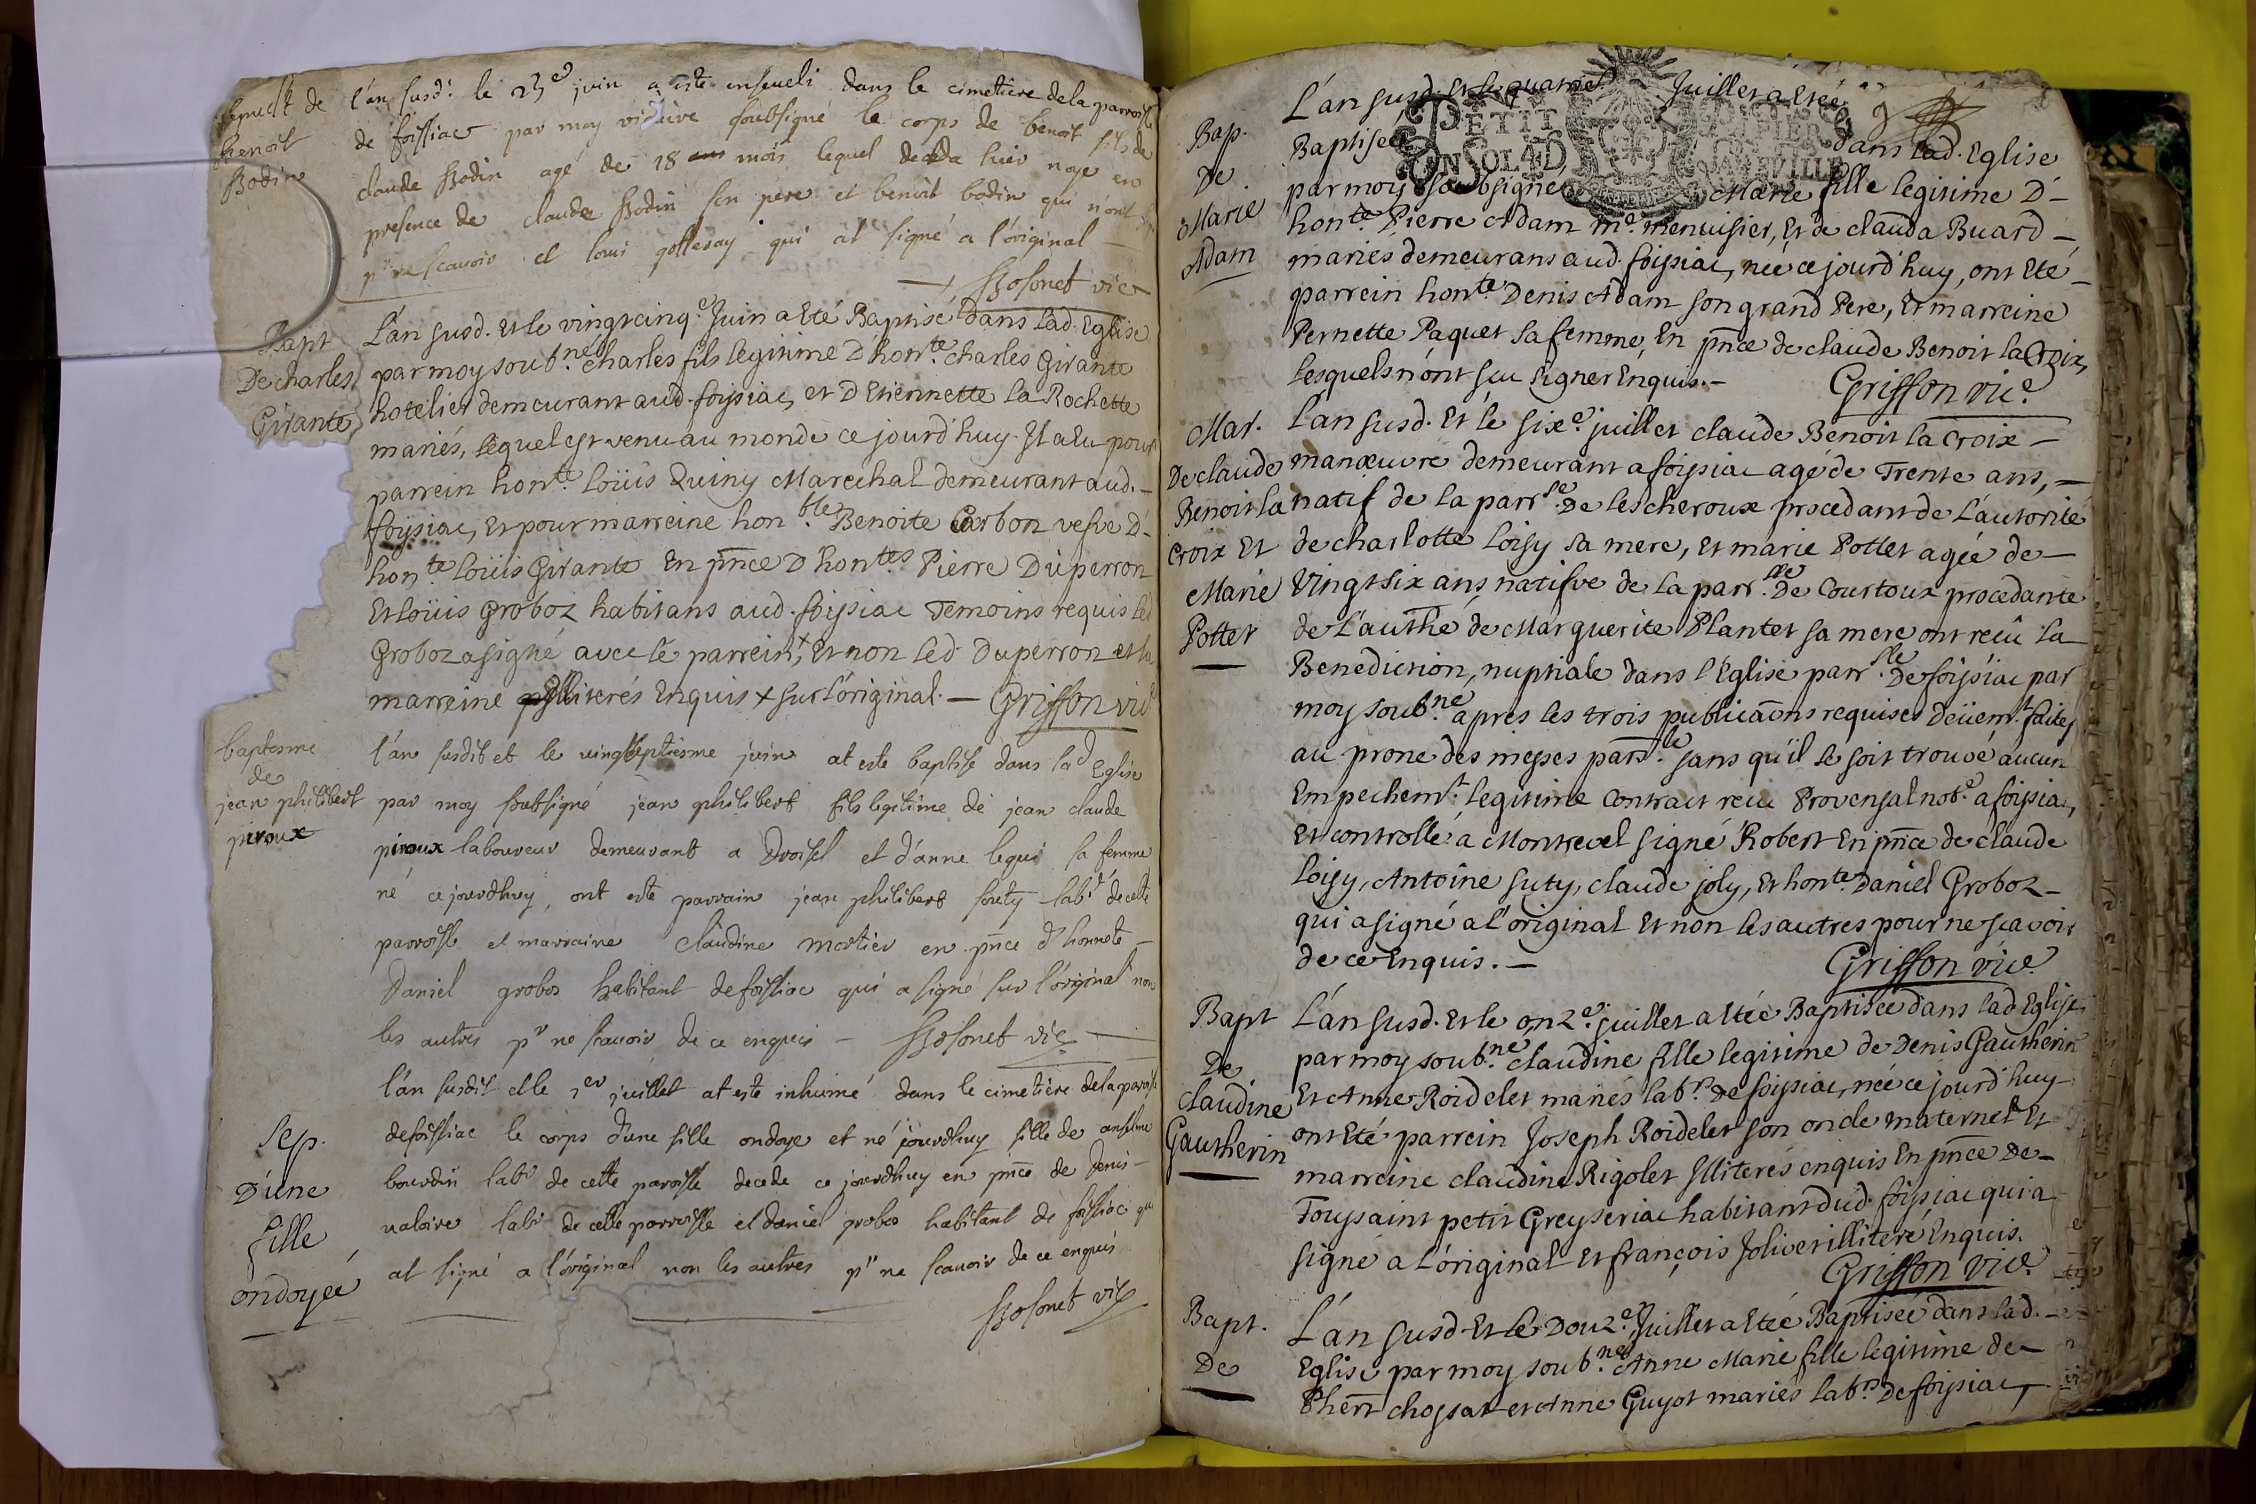 l'an susd. le 23e juin a este enseveli dans le cimetiere de la parroisse
de foissiac par moy vicaire soubsigné le corps de benoit fils de
claude Bodin agé de 18 mois lequel deceda hier noye en
presence de claude Bodin son pere et benoit bodin qui n'ont
pr ne scavoir et louis qui at signé a l'original
vic
benoit
Bodin
Bapt
De charles
Girante
L'an susd. Et le vingtcinq.e Juin a Eté Baptisé dans lad. Eglise
par moy soub.né charles fils legitime D'hon.te charles Girante
hotelier demeurant aud. foissiac, et D Etiennette la Rochette
mariés, lequel est venu au monde ce jourd'huy. Il a Eu pour
parrein hon.te Loüis Quiny Marechal demeurant aud. -
foissiac, Et pour marreine hon.ble Benoite Carbon vefve D'-
hon.te Loüis Girante En pnce D hon.tes Pierre Duperron
Et Loüis Groboz habitans aud. foissiac Temoins requis led
Groboz a signé avec le parrein, + Et non led. Duperron et la
marreine Illiterés Enquis + sur l'original. - Griffon vic
baptesme
de
jean philibert
piroux
l'an susdit et le vingtseptiesme juin at este baptisé dans lad Eglise
par moy soubsigné jean philibert fils legitime de jean claude
piroux laboureur demeurant a Droisel et d'anne lequi sa femme
né ce jourdhuy, ont este parrain jean philibert labr de cette
parroisse et marraine claudine mortier en pnce d'honneste -
Daniel grobos habitant de foissiac qui a signé sur l'original non
les autres pr ne scavoir de ce enquis - vic
Sep.
D'une
fille
ondoyée
l'an susdit et le 1er juillet at este inhumé dans le cimetiere de la paroisse
de foissiac le corps d'une fille ondoye et né jourdhuy fille de anselme
bourdin labr de cette paroisse decede ce jourdhuy en pnce de Denis -
labr de cette parroisse et daniel grobos habitant de foissiac qui
at signé a l'original non les autres pr ne scavoir de ce enquis
vic
Bap.
De
Marie
Adam
L'an susd. Et le quatrie. Juillet a Etée
Baptisée dans lad. Eglise
par moy soubsigné Marie fille legitime D'-
hon.te Pierre Adam m.e menuisier, Et de clauda Buard -
mariés demeurans aud. foissiac, née ce jourd'huy, ont Eté -
parrein hon.te Denis Adam son grand Pere, Et marreine
Pernette Paquet sa femme, En pnce de claude Benoit la Croix,
lesquels n'ont sçu signer Enquis. - Griffon vic.e
Mar.
De claude
Benoit la
Croix Et
Marie
Pottet
L'an susd. Et le six.e juillet claude Benoit la Croix -
manœuvre demeurant a foissiac agé de Trente ans, -
natif de la parr.se De Lescheroux procedant de L'autorité
de charlotte Loisy sa mere, Et marie Pottet agée de -
Vingt six ans natifve de la parr.sse De Courtoux procedante
de L'authé de Marguerite Plantet sa mere ont reçû la
Benediction, nuptiale dans l'Eglise parr.lle De foissiac par
moy soub.né apres les trois publicaons requises Deüem.t faites
au prone des messes parr.le sans qu'il se soit trouvé aucun
Empechem.t legitime Contract reçu Provensal not.e a foissiac,
Et controllé a Montrevel signé Robert En pnce de claude
Loisy, Antoine Suty, claude joly, Et hon.te Daniel Groboz -
qui a signé a l'original Et non les autres pour ne scavoir
de ce Enquis. - Griffon vic.e
Bapt
De
claudine
Gautherin
L'an susd. Et le onz.e juillet a Etée Baptisée dans lad. Eglise
par moy soub.né claudine fille legitime de Denis Gautherin
Et Anne Roidelet mariés lab.rs De foissiac, née ce jourd'huy
ont Eté parrein Joseph Roidelet son oncle maternel Et
marreine claudine Rigolet Illiterés enquis En pnce De -
Toussaint petit Greyseriac habitant dud. foissiac qui a
signé a l'original Et françois Jolivet illiteré Enquis.
Griffon vic.e
Bapt.
De
L'an susd. Et le Douz.e Juillet a Etée Baptisée dans lad. -
Eglise par moy soub.né Anne Marie fille legitime de -
Phert chossat et Anne Guyot mariés lab.rs De foissiac,